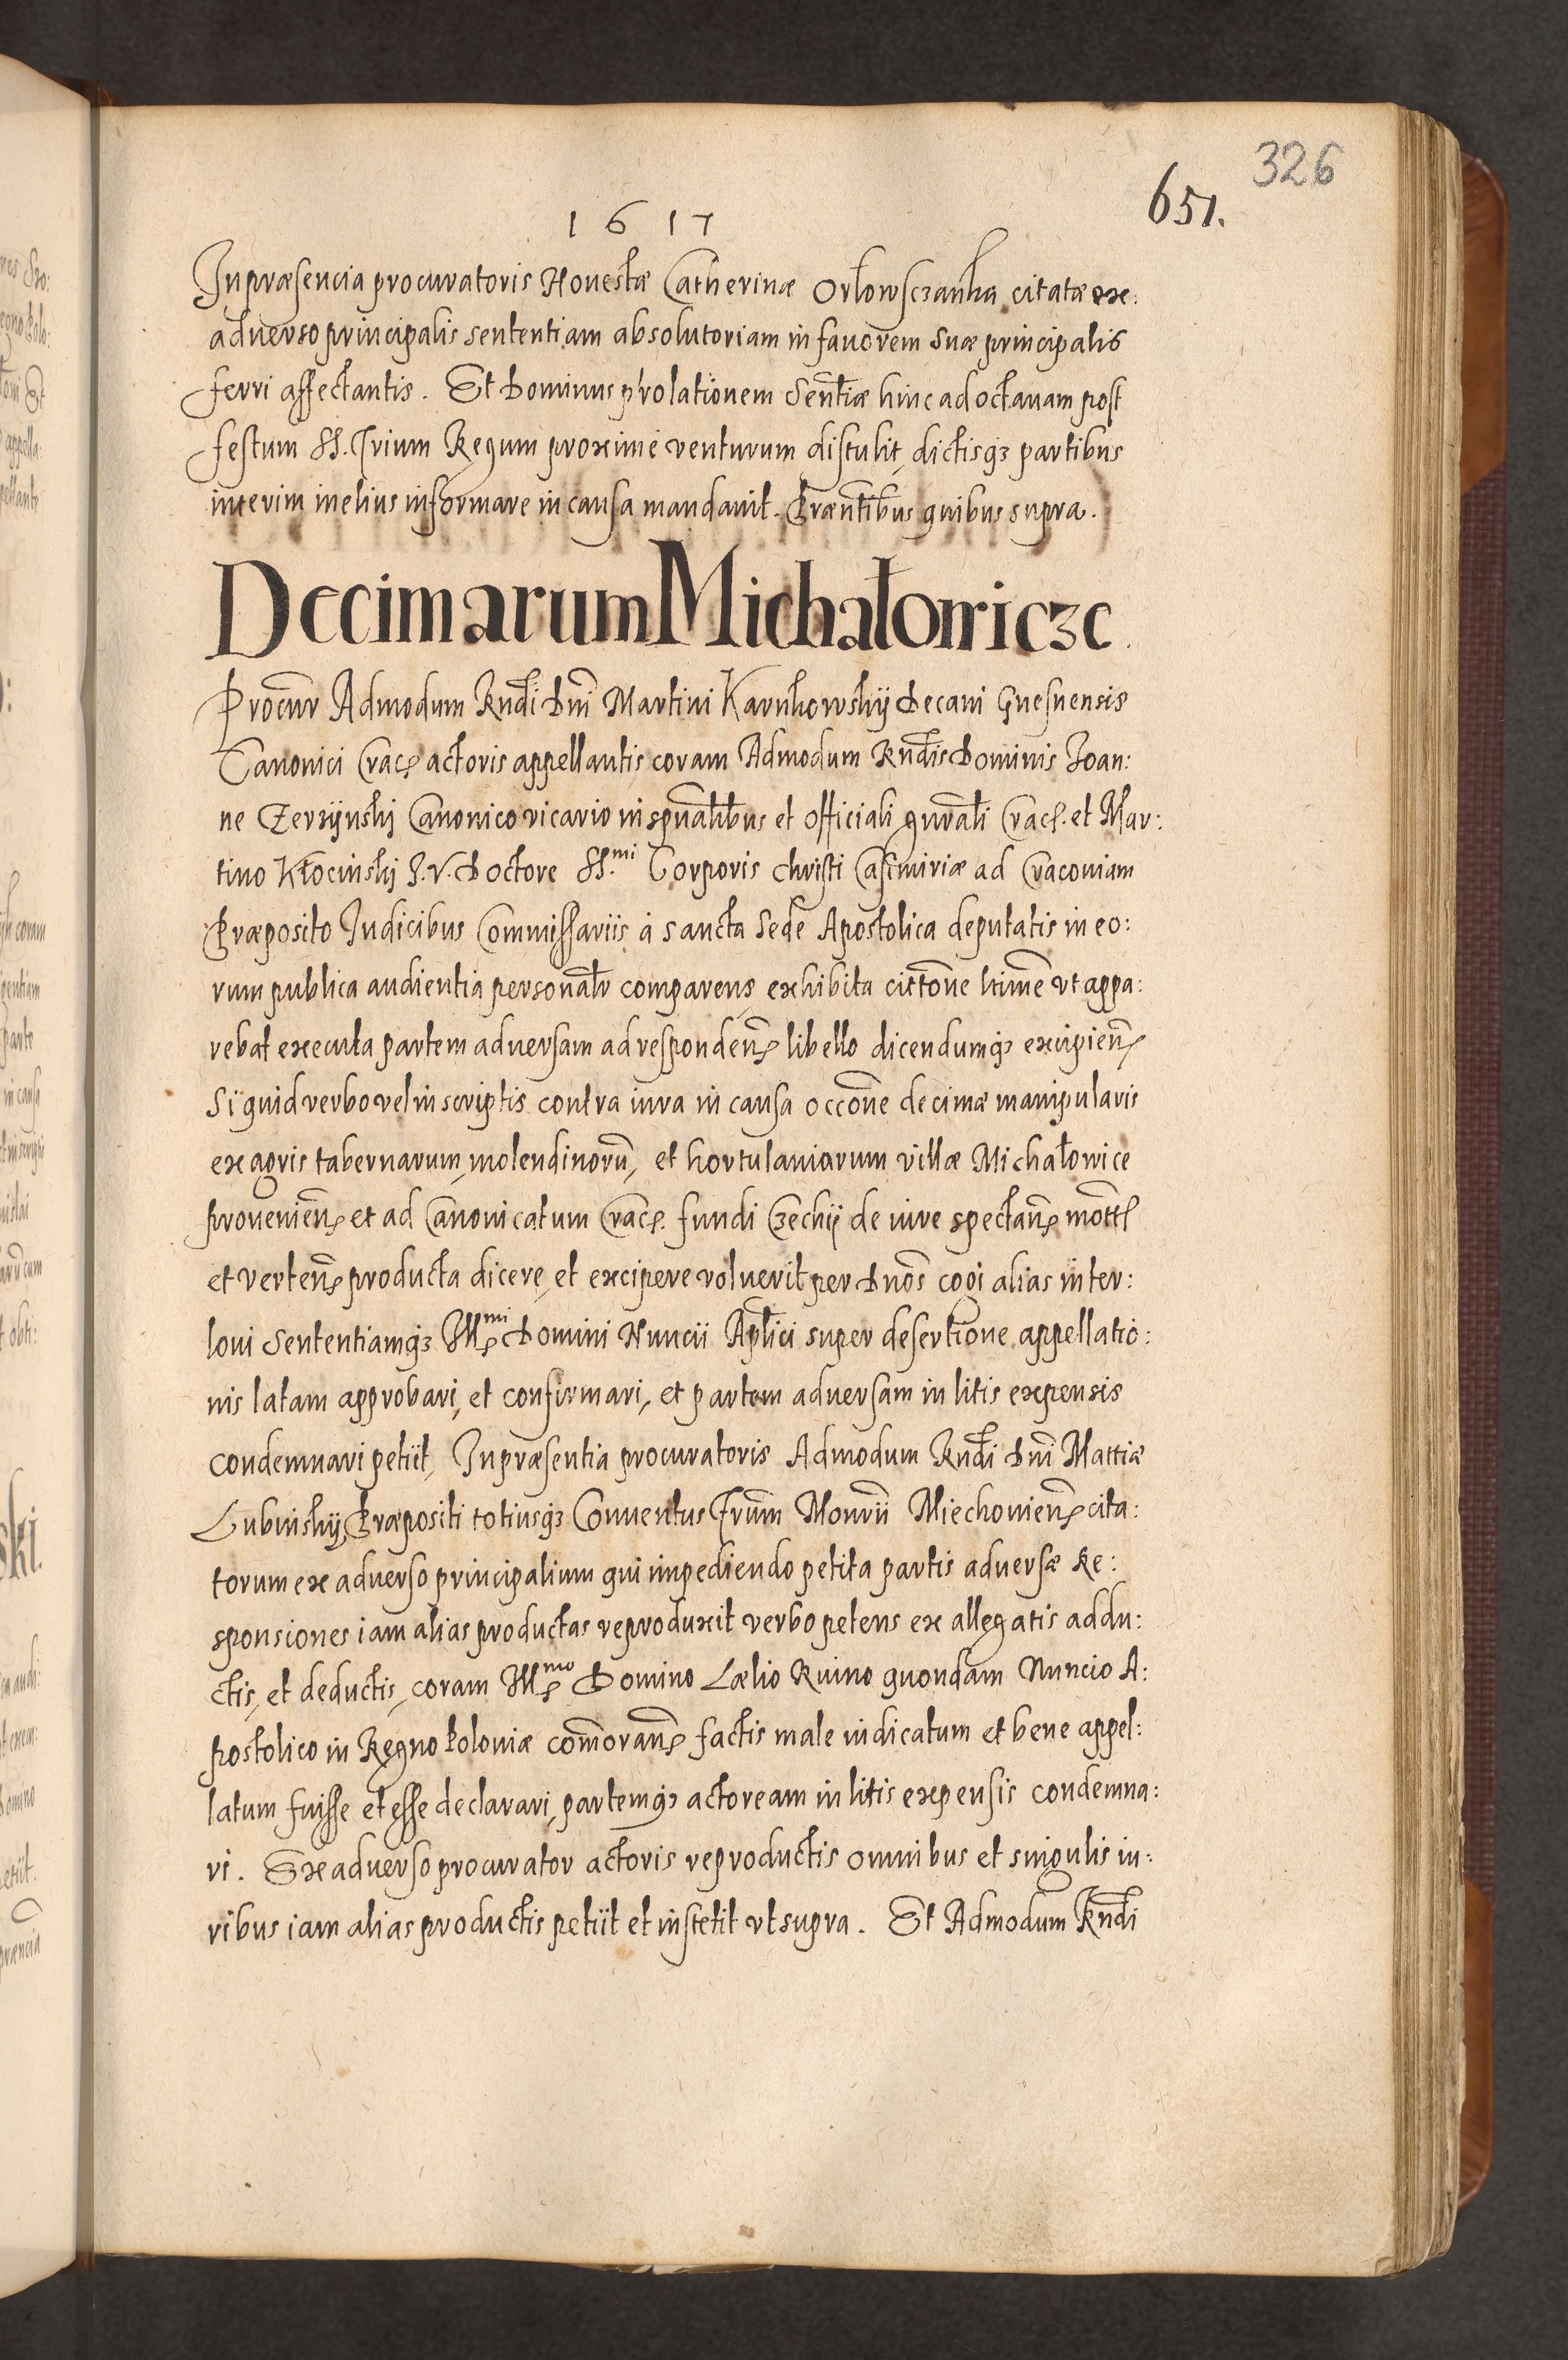 326
651.
1617
In præsencia procuratoris Honestæ Catherinæ Orłowsczanka citatæ ex:
adverso principalis sententiam absolutoriam in favorem suæ principalis
ferri affectantis. Et Dominus prolationem Sentiæ hinc ad octavam post
festum SS. Trium Regum proxime venturum distulit, dictisqȝ partibus
interim melius informare in causa mandavit. Præntibus quibus supra.
Decimarum Michałowicze.
Procur Admodum Rndi Dni Martini Karnkowskÿ Decani Gnesnensis
Canonici Crac. actoris appellantis coram Admodum Rndis Dominis Joan:
ne Zerzÿnskÿ Canonico vicario in spūalibus et officiali gnrali Crac. et Mar:
tino Kłocinskÿ J.V. Doctore SS.mi Corporis christi Casimiriæ ad Cracoviam
Præposito Judicibus Commissariis à sancta Sede Apostolica deputatis in eo:
rum publica audientia personalr comparens exhibita citone ltime vt appa:
rebat executa partem adversam ad responden. libello dicendumqȝ excipien.
Si quid verbo vel in scriptis contra iura in causa occone decimæ manipularis
ex agris tabernarum, molendinorū, et hortulaniarum villæ Michałowice
provenien. et ad Canonicatum Crac. fundi Czechÿ de iure spectan. mott
et verten. producta dicere, et excipere voluerit per Dnos cogi alias inter:
loui Sententiamqȝ Illmi Domini Nuncii Aplici super desertione appellatio:
nis latam approbari, et confirmari, et partem adversam in litis expensis
condemnari petiit, In præsentia procuratoris Admodum Rndi Dni Mattiæ
Lubinskÿ, Præpositi totiusqȝ Conventus Frum Monrii Miechovien. cita:
torum ex adverso principalium qui impediendo petita partis adversæ Re:
sponsiones iam alias productas reproduxit verbo petens ex allegatis addu:
ctis, et deductis, coram Illmo Domino Lælio Ruino quondam Nuncio A:
postolico in Regno Poloniæ comoran. factis male iudicatum et bene appel:
latum fuisse et esse declarari, partemqȝ actoream in litis expensis condemna:
ri. Ex adverso procurator actoris reproductis omnibus et singulis iu:
ribus iam alias productis petiit et institit vt supra. Et Admodum Rndi